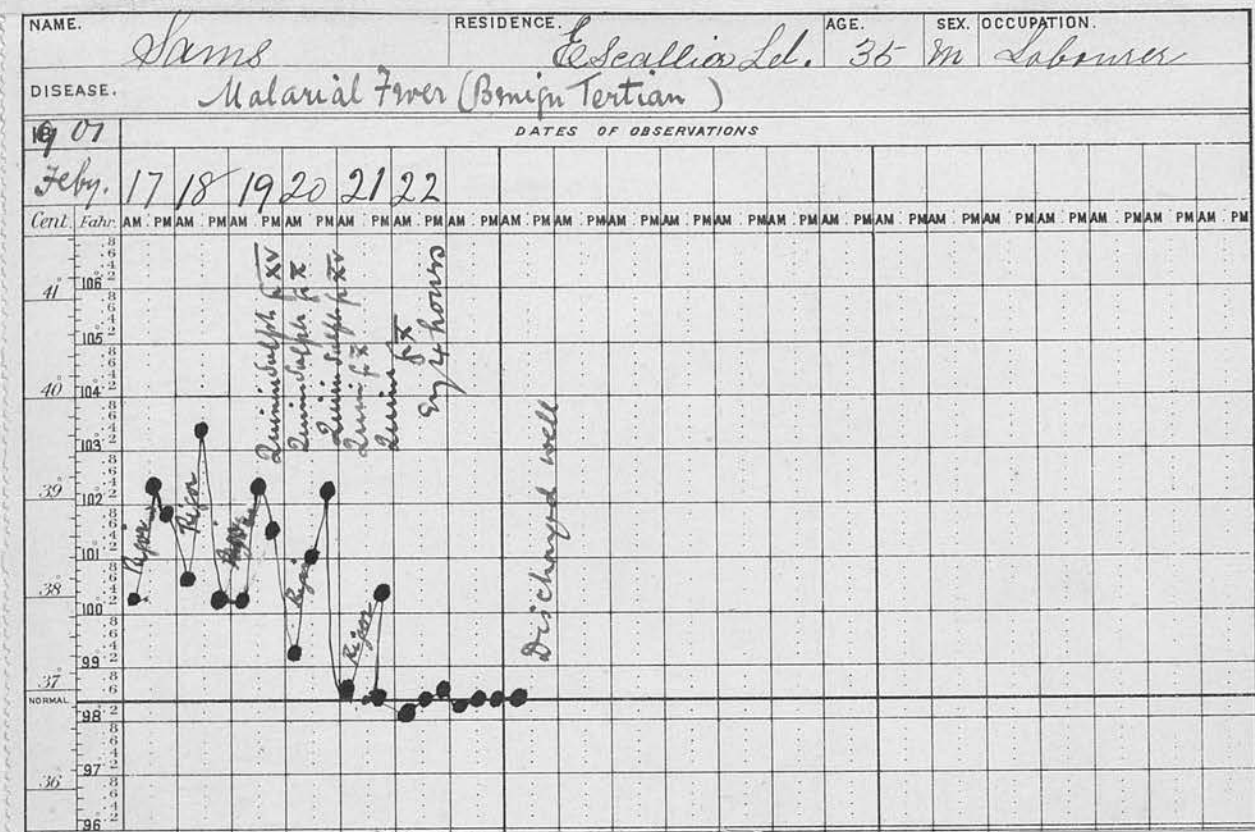 NAME. Sams RESIDENCE. Escallier Ld. AGE. 35 SEX. m OCCUPATION. Labourer
DISEASE. Malarial Fever (Benign Tertian)
1907 DATES OF OBSERVATIONS
Feby. 17 18 19 20 21 22
Cent. Fahr. AM PM AM PM AM PM AM PM AM PM AM PM AM PM AM PM AM PM AM PM AM PM AM PM AM PM AM PM AM PM AM PM AM PM AM PM AM PM AM PM AM PM
41° 106°
105°
40° 104°
103°
39° 102°
101°
38° 100°
99°
37°
NORMAL
98°
97°
36°
96°
Rigor
Rigor
Rigor
Rigor
Rigor
Quinin Sulph gr XV
Quinin Sulph gr X
Quinin Sulph gr XV
Quinin gr X
Quinin gr X
Ery 4 hours
Discharged well